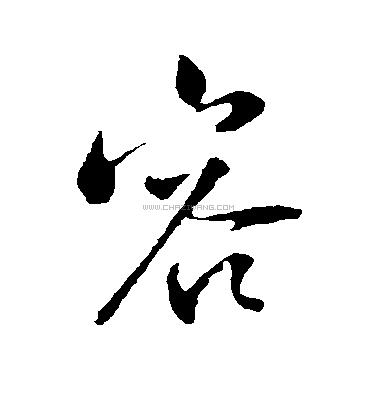 容
WWW.CHAZIWANG.COM